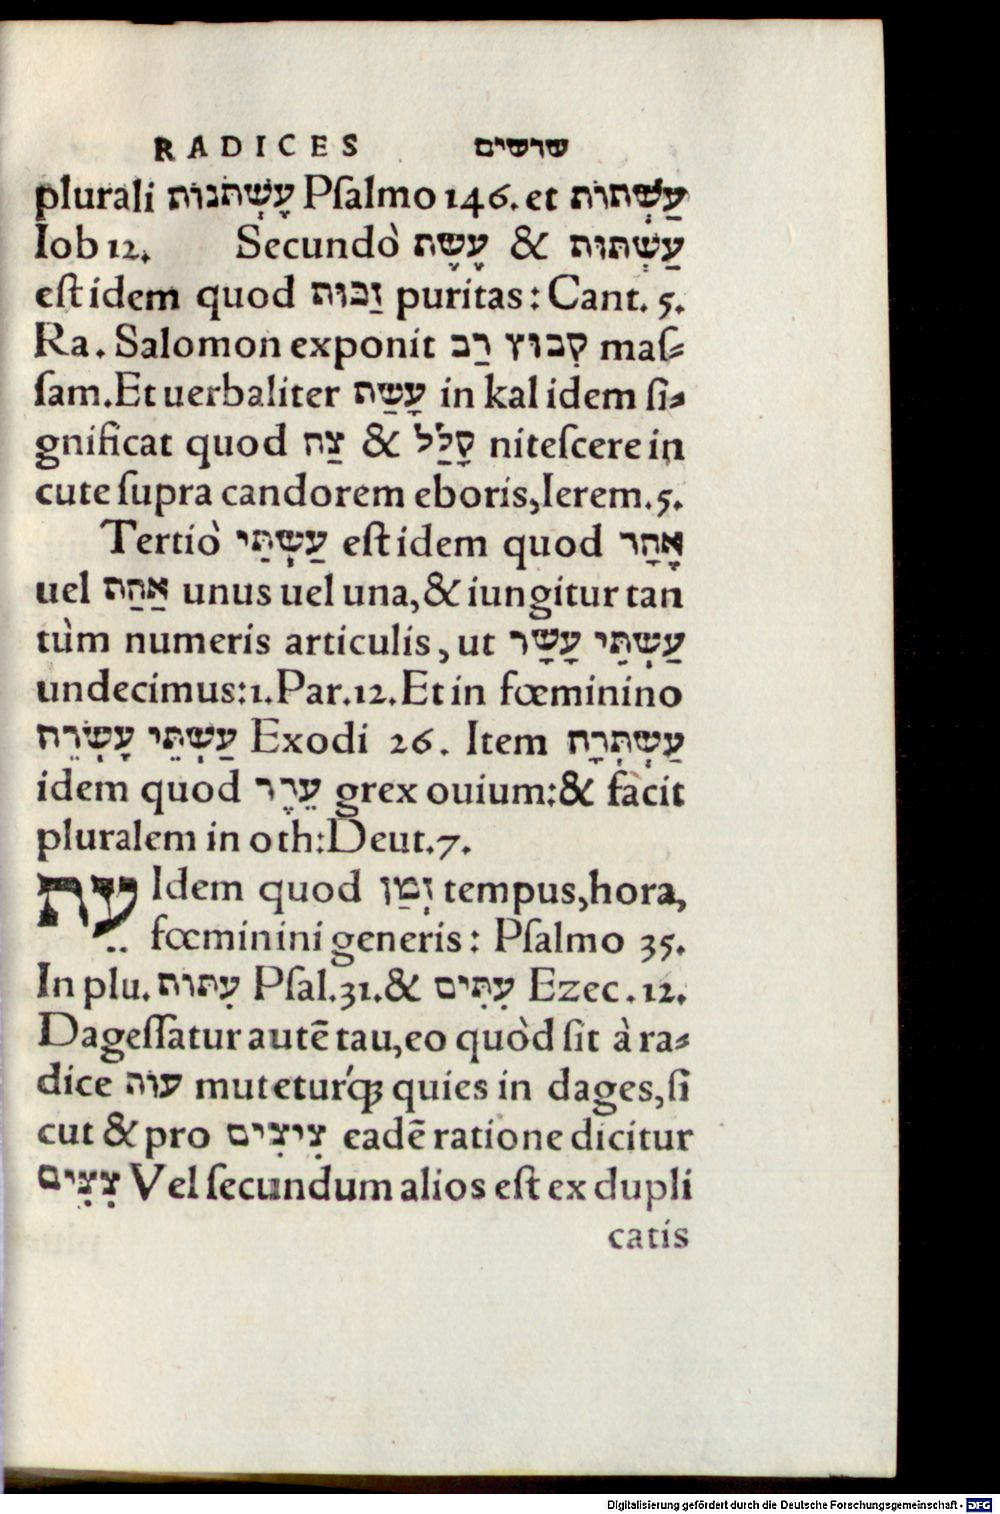 RADICES שרשים
plurali עָשְׁתֹּנוֹת Pſalmo 146. et עַשְׁתּוֹת
Iob 12. Secundò עָשֶׁת & עַשְׁתּוּת
eſt idem quod זַכּוּת puritas: Cant. 5.
Ra. Salomon exponit קִבּוּץ רַב maſ⸗
ſam. Et uerbaliter עָשַׁת in kal idem ſi⸗
gnificat quod צַח & קָלַל niteſcere in
cute ſupra candorem eboris, Ierem. 5.
Tertiò עַשְׁתַּי eſt idem quod אֶחָד
uel אַחַת unus uel una, & iungitur tan
tùm numeris articulis, ut עַשְׁתַּי עָשָׂר
undecimus: 1. Par. 12. Et in fœminino
עַשְׁתֵּי עָשְׂרֵה Exodi 26. Item עַשְׁתְּרָה
idem quod עֵדֶר grex ouium: & facit
pluralem in oth: Deut. 7.
עֵת Idem quod זְמַן tempus, hora,
fœminini generis: Pſalmo 35.
In plu. עִתּוֹת Pſal. 31. & עִתִּים Ezec. 12.
Dageſſatur autē tau, eo quòd ſit à ra⸗
dice עוה muteturq́ꝫ quies in dages, ſi
cut & pro צִיצִים eadē ratione dicitur
צִצִּים Vel ſecundum alios eſt ex dupli
catis
Digitalisierung gefördert durch die Deutsche Forschungsgemeinschaft - DFG